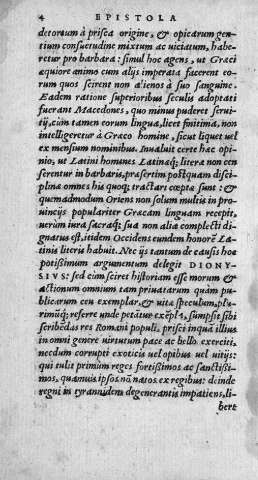 4 EPISTOLA
detortum à prisca origine, & opicarum gen-
tium consuetudine mixtum ac uiciatum, habe-
retur pro barbara: simul hoc agens, ut Græci
æquiore animo cum alijs imperata facerent eo-
rum quos scirent non alienos à suo sanguine.
Eadem ratione superioribus seculis adoptati
fuerant Macedones, quo minus puderet serui-
tij, cum tamen eorum lingua, licet finitima, non
intelligeretur à Græco homine, sicut liquet uel
ex mensium nominibus. Inualuit certe hæc opi-
nio, ut Latini homines Latinaq; litera non cen
serentur in barbaris, præsertim postquam disci-
plina omnes his quoq; tractari cœpta sunt: &
quemadmodum Oriens non solum multis in pro-
uincijs populariter Græcam linguam recepit,
uerùm iura sacraq; sua non alia complecti di-
gnatus est, itidem Occidens eundem honorē La-
tinis literis habuit. Nec ijs tantum de causis hoc
potissimum argumentum delegit DIONY-
SIVS: sed cùm sciret historiam esse morum &
actionum omnium tam priuatarum quàm pu-
blicarum ceu exemplar, & uitæ speculum, plu-
rimùq; referre unde petātur exēpla, sumpsit sibi
scribēdas res Romani populi, prisci inquā illius
in omni genere uirtutum pace ac bello exerciti,
necdum corrupti exoticis uel opibus uel uitijs:
qui tulit primùm reges fortissimos ac sanctissi-
mos, quamuis ipsos nō natos ex regibus: deinde
regni in tyrannidem degenerantis impatiens, li-
bert